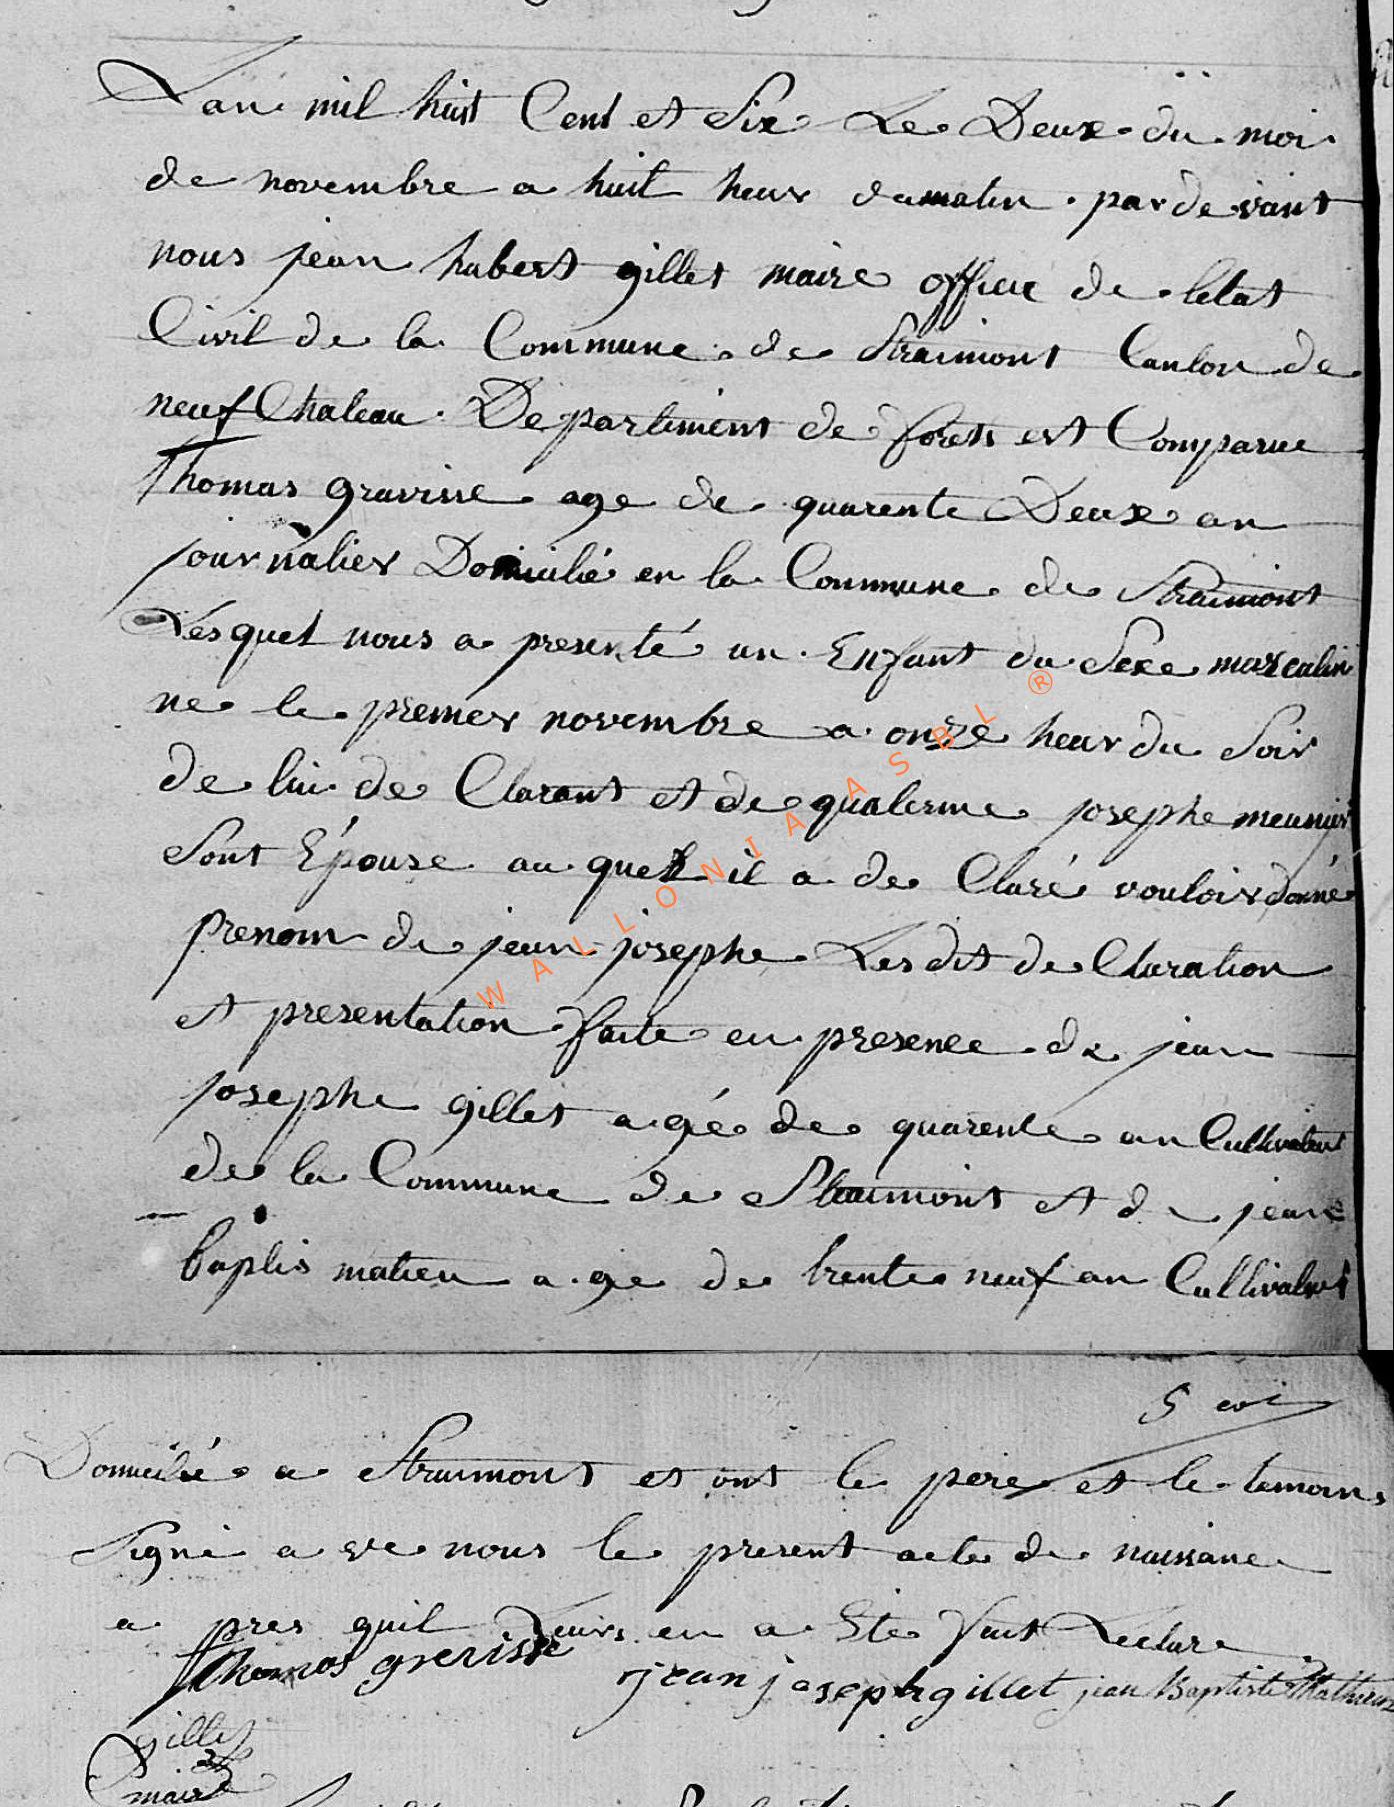 Lan mil huit Cent et Six Le Deux du moi
de novembre a huit heur du matin par devant
nous jean hubert gillet maire officie de letat
Civil de la Commune de Straimont Canton de
neufChateau Departement de forets est Comparue
Thomas gravisse age de quarente Deux an
journalier Domicilié en la Commune de Straimont
Lesquel nous a presenté un Enfant du Sexe masculin
ne le premer novembre a onze heur du Soir
de lui de Clarant et de qualerine josephe meunier
Sont Épouse au quel il a de Claré vouloir donné
prenom de jean josephe Les dit de Claration
et presentation faite en presence de jean
josephe gillet a gé de quarente an Cultivateur
de la Commune de Straumont et de jean
baptis matieu a ge de trente neuf an Cultivateur
5
Domicilié a Straimont et ont le pere et le temoins
Signé a vec nous le present acte de naissance
a pres quil Leurs en a Ete fait Lecture
Thomas grerisse
jean joseph gillet jean Baptiste Mathieu
gillet
maire
WALLONIA ASBL ®